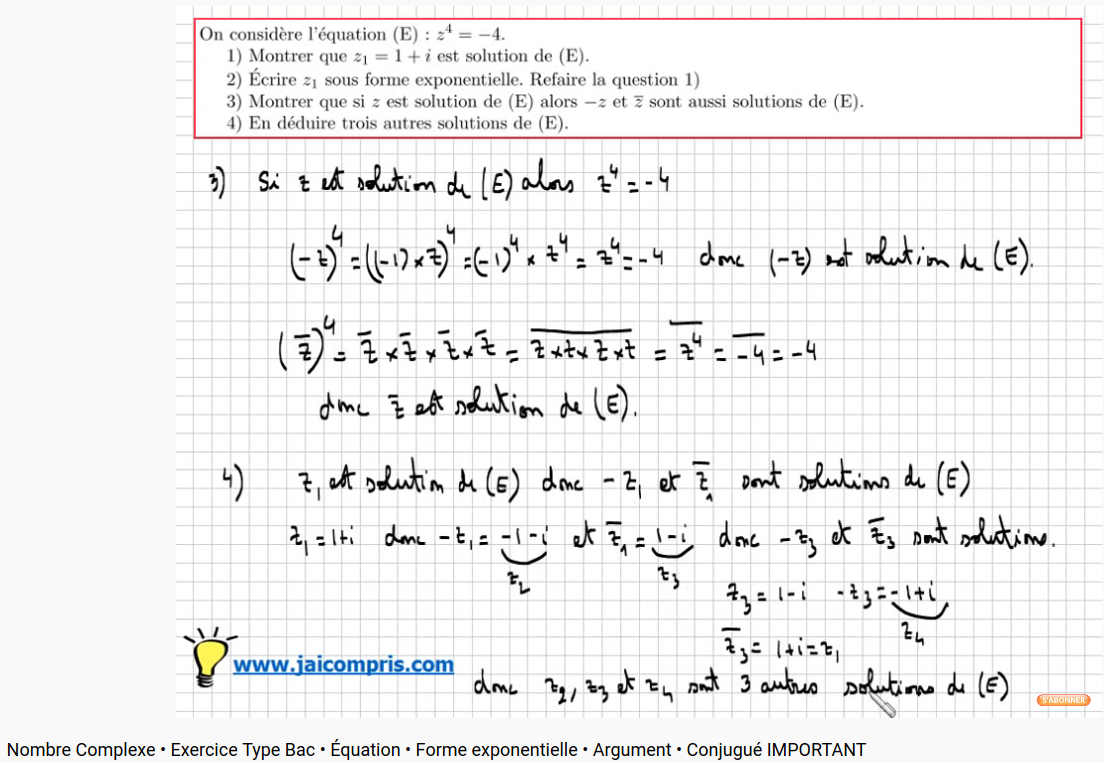 On considère l'équation (E) : z⁴ = −4.
1) Montrer que z₁ = 1 + i est solution de (E).
2) Écrire z₁ sous forme exponentielle. Refaire la question 1)
3) Montrer que si z est solution de (E) alors −z et z̅ sont aussi solutions de (E).
4) En déduire trois autres solutions de (E).
3) Si z est solution de (E) alors z⁴ = -4
(-z)⁴ = ((-1)×z)⁴ = (-1)⁴ × z⁴ = z⁴ = -4 donc (-z) est solution de (E).
(z̅)⁴ = z̅ × z̅ × z̅ × z̅ = \overline{z×z×z×z} = \overline{z⁴} = \overline{-4} = -4
donc z̅ est solution de (E).
4) z₁ est solution de (E) donc -z₁ et z̅₁ sont solutions de (E)
z₁ = 1+i donc -z₁ = -1-i et z̅₁ = 1-i donc -z₃ et z̅₃ sont solutions.
z₂ z₃
z₃ = 1-i -z₃ = -1+i
z₄
z̅₃ = 1+i = z₁
www.jaicompris.com
donc z₂, z₃ et z₄ sont 3 autres solutions de (E)
S'ABONNER
Nombre Complexe • Exercice Type Bac • Équation • Forme exponentielle • Argument • Conjugué IMPORTANT